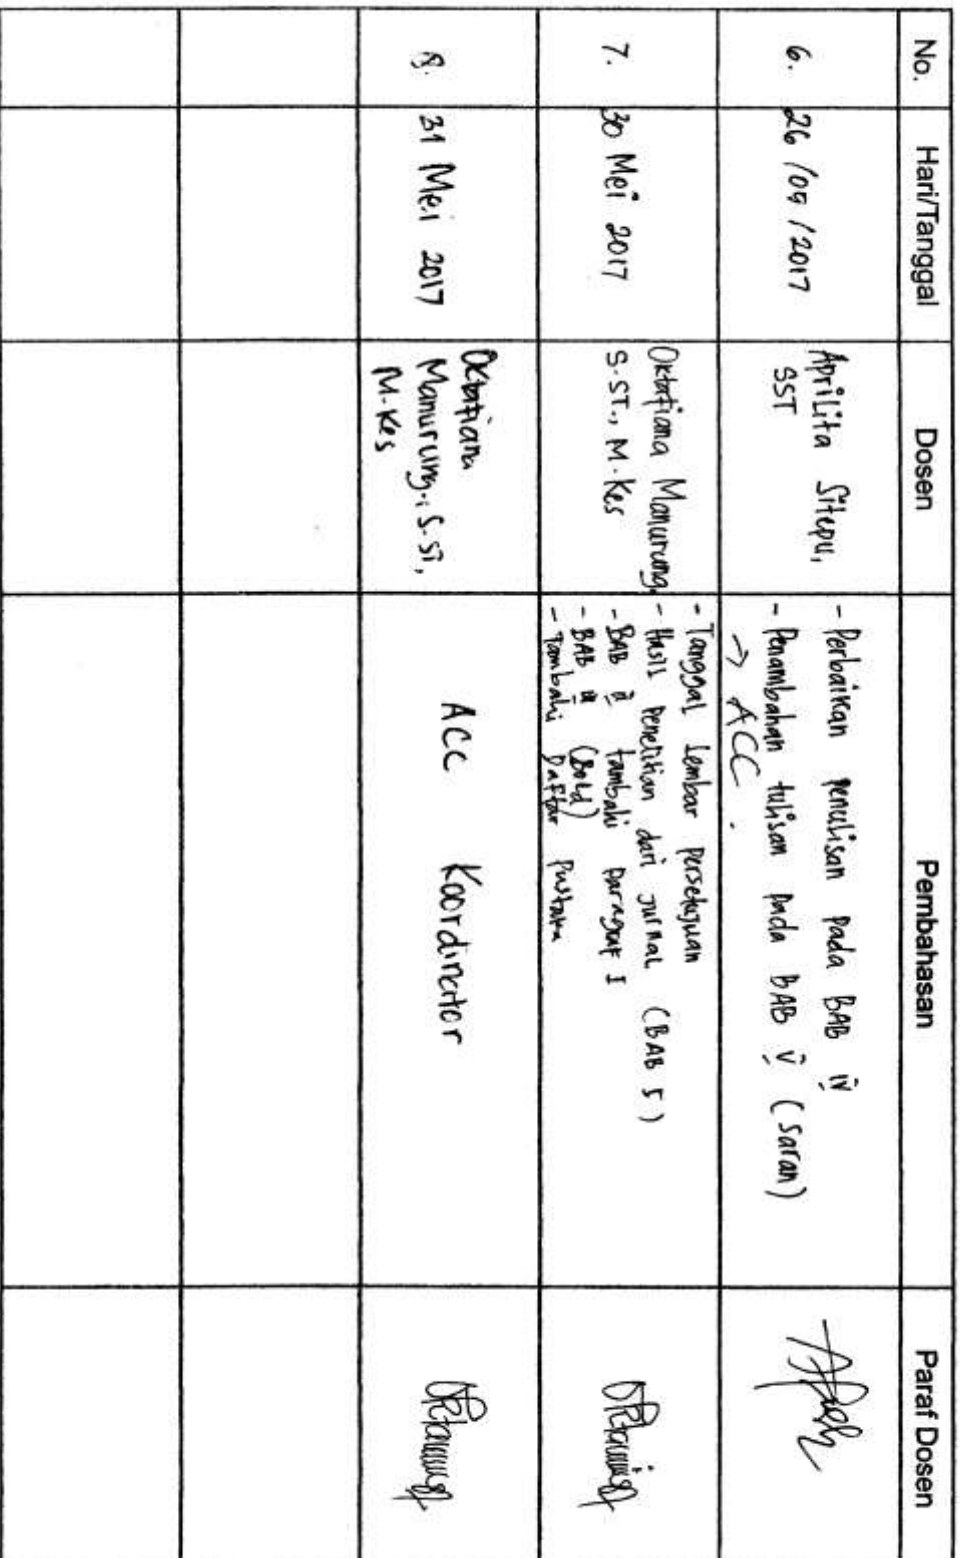 No. Hari/Tanggal Dosen Pembahasan Paraf Dosen
6. 26 /05 / 2017
Aprilita Sitepu,
SST
- Perbaikan penulisan pada BAB IV
- Penambahan tulisan pada BAB V (saran)
→ ACC.
7. 30 Mei 2017
Oktafiana Manurung,
S.ST., M.Kes
- Tanggal lembar persetujuan
- Hasil penelitian dari jurnal (BAB 5)
- BAB tambahi paragraf I
- BAB (Bold)
- Tambahi Daftar Pustaka
8. 31 Mei 2017
Oktafiana
Manurung, S.Si,
M.Kes
ACC Koordinator